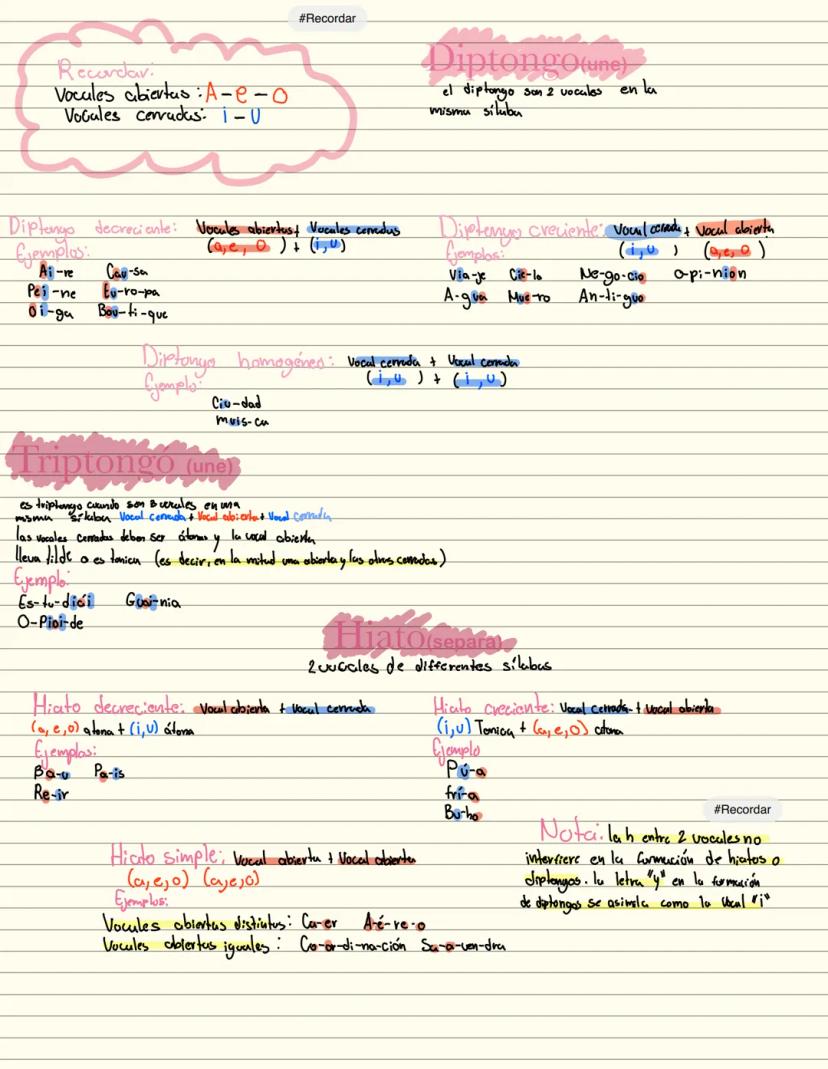 #Recordar
Recordar:
Vocales abiertas: A-e-o
Vocales cerradas: i-U
Diptongo(une)
el diptongo son 2 vocales en la
misma sílaba
Diptongo decreciente: Vocales abiertas + Vocales cerradas
(a, e, o) + (i,u)
Ejemplos:
Ai-re Cau-sa
Pei-ne Eu-ro-pa
Oi-ga Bou-ti-que
Diptongo creciente: Vocal cerrada + Vocal abierta
(i,u) (a,e,o)
Ejemplos:
Via-je Cie-lo Ne-go-cio o-pi-nion
A-gua Mue-ro An-ti-guo
Diptongo homogéneo: Vocal cerrada + Vocal cerrada
(i,u) + (i,u)
Ejemplo:
Ciu-dad
muis-ca
Triptongó (une)
es triptongo cuando son 3 vocales en una
misma sílaba Vocal cerrada + Vocal abierta + Vocal cerrada
las vocales cerradas deben ser átonas y la vocal abierta
lleva tilde o es tonica (es decir, en la mitad una abierta y las otras cerradas)
Ejemplo:
Es-tu-diái Guai-nia
O-Pioi-de
Hiato(separa)
2 vocales de differentes sílabas
Hiato decreciente: Vocal abierta + Vocal cerrada
(a,e,o) atona + (i,u) átona
Ejemplos:
Ba-u Pa-is
Re-ir
Hiato creciente: Vocal cerrada + Vocal abierta
(i,u) Tonica + (a,e,o) atona
Ejemplo
Pú-a
frí-a
Bu-ho
#Recordar
Nota: la h entre 2 vocales no
interfiere en la formación de hiatos o
diptongos. la letra "y" en la formación
de diptongos se asimila como la vocal "i"
Hiato simple: Vocal abierta + Vocal abierta
(a,e,o) (a,e,o)
Ejemplos:
Vocales abiertas distintas: Ca-er A-é-re-o
Vocales abiertas iguales: Co-or-di-na-ción Sa-a-ven-dra